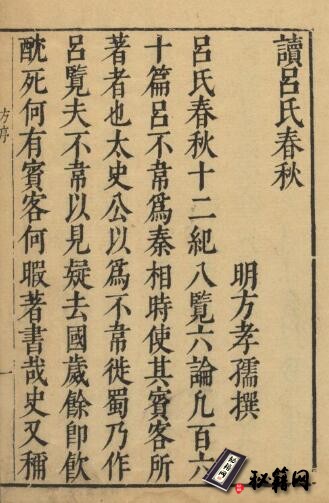 讀呂氏春秋
明方孝孺撰
呂氏春秋十二紀八覽六論凡百六
十篇呂不韋爲秦相時使其賓客所
著者也太史公以爲不韋徙蜀乃作
呂覽夫不韋以見疑去國歲餘卽飮
酖死何有賓客何暇著書哉史又稱
方序
一
秘籍网
秘籍网